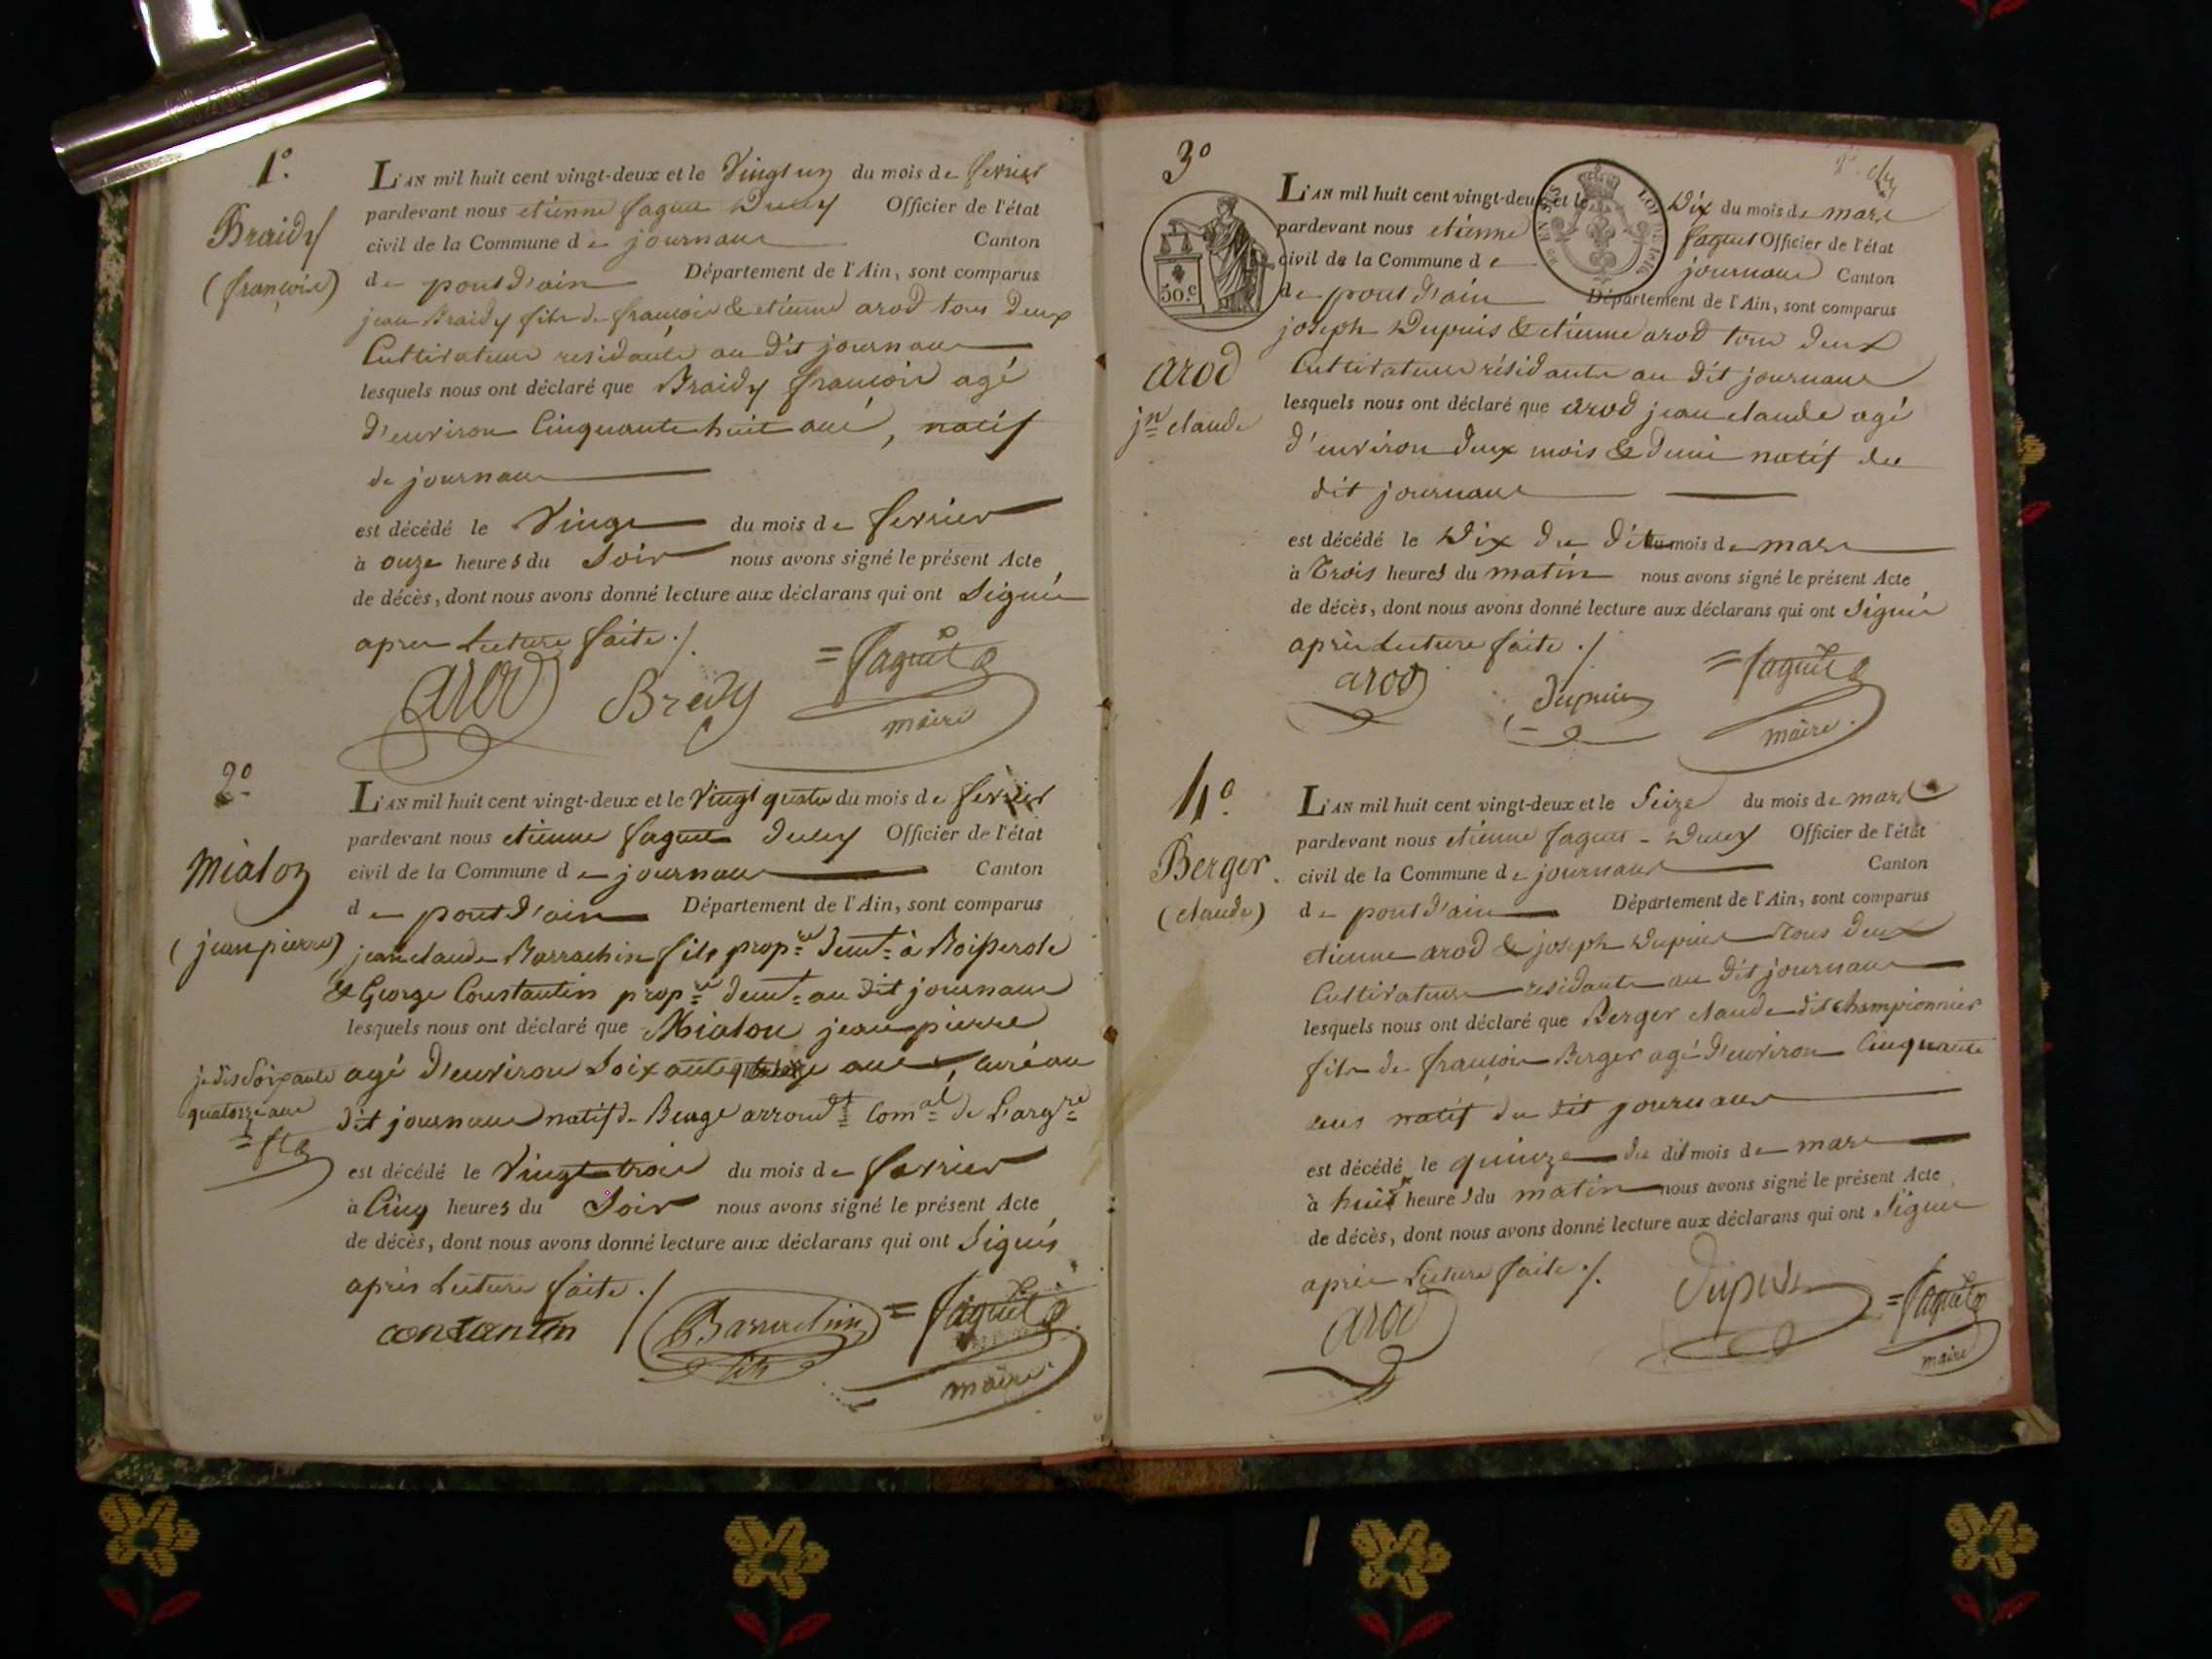 1.°
Braidy
(françois)
L'AN mil huit cent vingt-deux et le Vingt un du mois de fevrier
pardevant nous etienne faguet Ducy Officier de l'état
civil de la Commune de journans Canton
de pont d'ain Département de l'Ain, sont comparus
jean Braidy fils de françois & etienne arod tous deux
Cultivateurs residants au dit journans
lesquels nous ont déclaré que Braidy françois agé
d'environ Cinquante huit ans, natif
de journans
est décédé le Vingt du mois de fevrier
à onze heures du Soir nous avons signé le présent Acte
de décès, dont nous avons donné lecture aux déclarans qui ont Signés
après Lecture faite ./.
arod Bredy = faguet D
maire
2°
Mialon
(jean pierre)
L'AN mil huit cent vingt-deux et le Vingt quatre du mois de fevrier
pardevant nous etienne faguet Ducy Officier de l'état
civil de la Commune de journans Canton
de pont d'ain Département de l'Ain, sont comparus
jean claude Barrachin fils prop.re demt. à
& George Constantin prop.re demt. au dit journans
lesquels nous ont déclaré que Mialon jean pierre
agé d'environ Soixante ans, curé au
je dis Soixante
quatorze ans
dit journans natif de arroudt. de L'arg.re
est décédé le Vingt trois du mois de fevrier
à Cinq heures du Soir nous avons signé le présent Acte
de décès, dont nous avons donné lecture aux déclarans qui ont Signés
après Lecture faite ./
constantin Barrachin fils = faguet D
maire
3°
50.c
LOI DE 1816
arod
jn claude
L'AN mil huit cent vingt-deux et le Dix du mois de mars
pardevant nous etienne faguet Officier de l'état
civil de la Commune de journans Canton
de pont d'ain Département de l'Ain, sont comparus
joseph Dupuis & etienne arod tous deux
Cultivateurs résidants au dit journans
lesquels nous ont déclaré que arod jean claude agé
d'environ deux mois & demi natif du
dit journans
est décédé le Dix du dit du mois de mars
à Trois heures du matin nous avons signé le présent Acte
de décès, dont nous avons donné lecture aux déclarans qui ont Signés
après Lecture faite ./
arod Dupuis = faguet D
maire
4°
Berger
(claude)
L'AN mil huit cent vingt-deux et le Seize du mois de mars
pardevant nous etienne faguet - Ducy Officier de l'état
civil de la Commune de journans Canton
de pont d'ain Département de l'Ain, sont comparus
etienne arod & joseph Dupuis Tous deux
Cultivateurs residants au dit journans
lesquels nous ont déclaré que Berger claude dit championnier
fils de françois Berger agé d'environ Cinquante
ans natif du dit journans
est décédé le quinze du dit mois de mars
à huit heures du matin nous avons signé le présent Acte
de décès, dont nous avons donné lecture aux déclarans qui ont Signés
après Lecture faite ./.
arod Dupuis = faguet D
maire